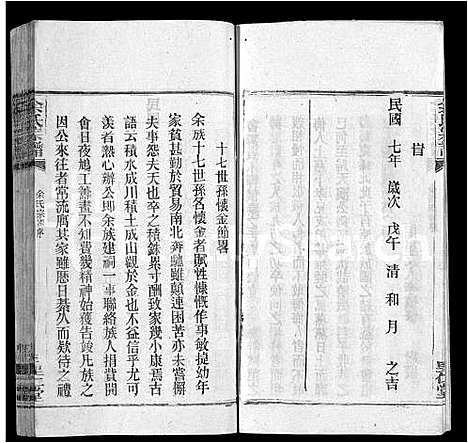 旹
民國 七年 歲次 戊午 清和月 之吉
十七世孫名懷金節畧
余族十七世孫名懷金者賦性慷慨作事敏㨗幼年
家貧甚勤於貿易南北奔馳雖顛連困苦亦未嘗懈
夫事怨夫天也卒之積銖累寸酬致家幾小康焉古
語云積水成川積土成山觀於金也不信乎尤可
羨者熱心辦公即余族建祠一事聯絡族人捐貲開
會日夜鳩工善畫不知費幾精神始獲告竣凡族之
因公來往者常流屑其家雖愿日綦久而欵待之禮
余氏宗譜